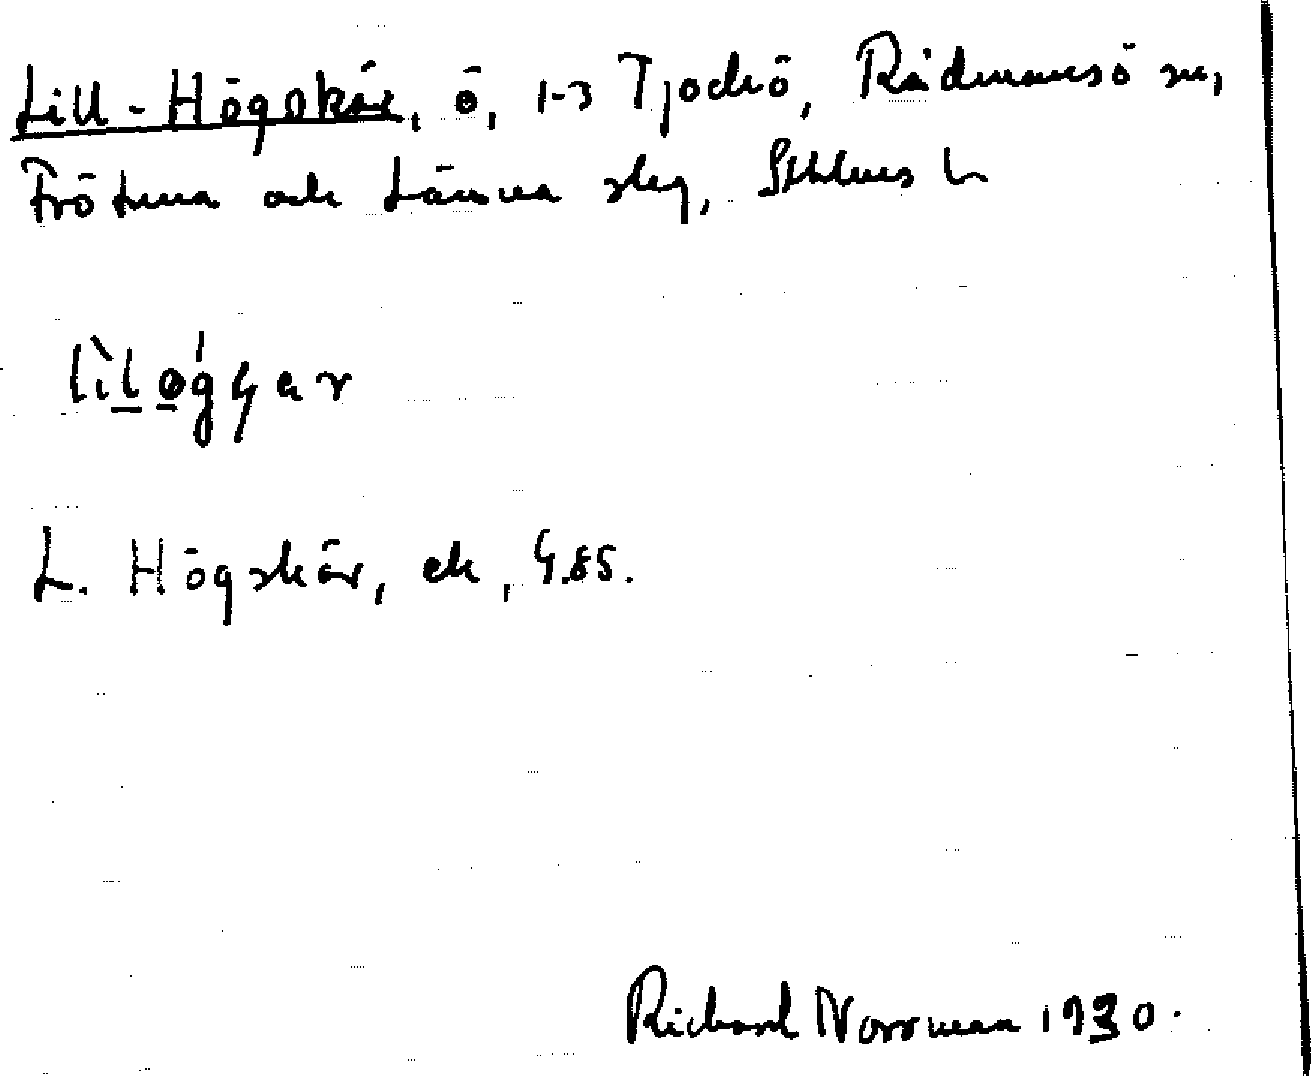 Lill-Högskär, ö, 1-3 Tjockö, Rådmansö sn,
Frötuna och Länna skg, Sthlms L
L. Högskär, ek, 4.85.
Richard Norrman 1930.